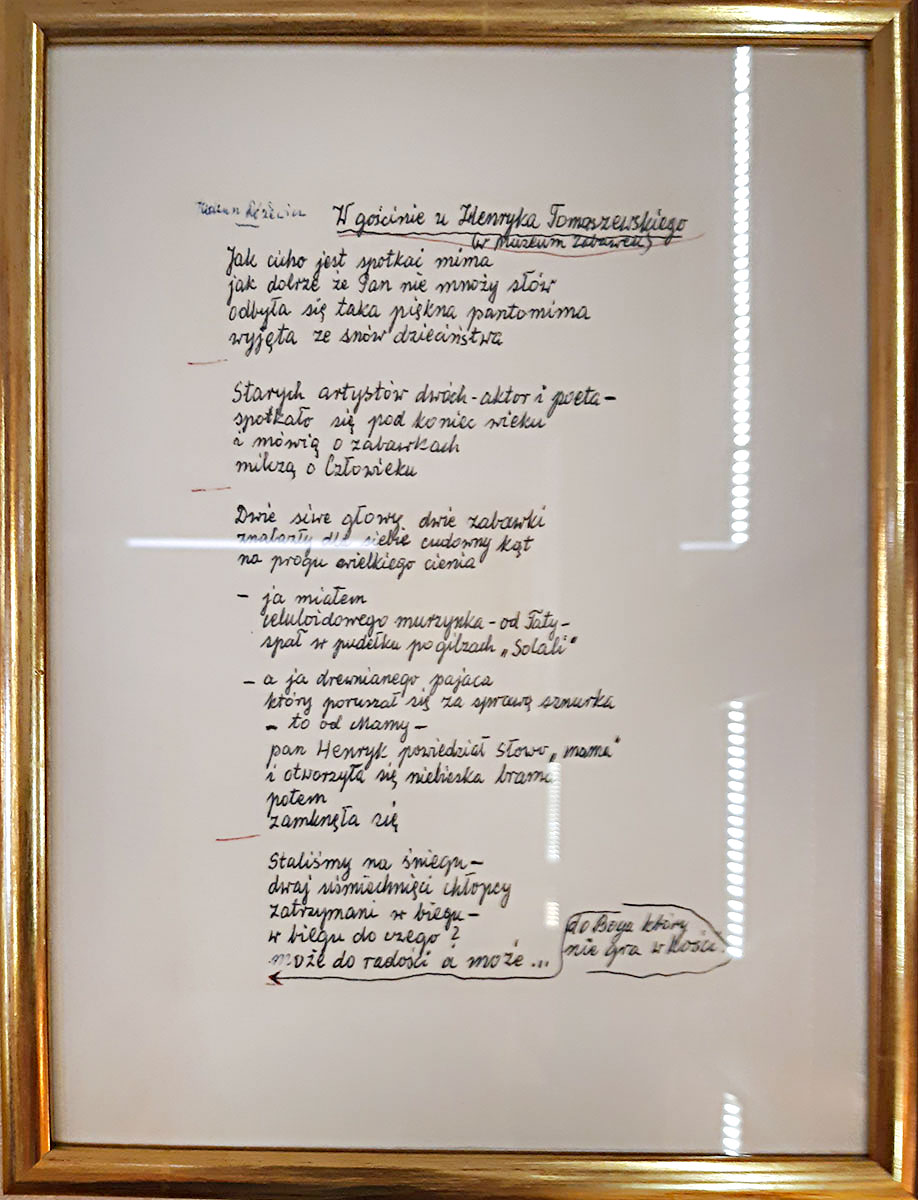 W gościnie u Henryka Tomaszewskiego
(w Muzeum Zabawek)
Jak cicho jest spotkać mima
jak dobrze że Pan nie mnoży słów
odbyła się taka piękna pantomima
wyjęta ze snów dzieciństwa
Starych artystów dwóch - aktor i poeta -
spotkało się pod koniec wieku
i mówią o zabawkach
milczą o Człowieku
Dwie siwe głowy dwie zabawki
znalazły dla siebie cudowny kąt
na progu wielkiego cienia
- ja miałem
celuloidowego murzynka - od Taty -
spał w pudełku po gilzach „Solali"
- a ja drewnianego pajaca
który poruszał się za sprawą sznurka
- to od Mamy -
pan Henryk powiedział słowo „mama"
i otworzyła się niebieska brama
potem
zamknęła się
Staliśmy na śniegu -
dwaj uśmiechnięci chłopcy
zatrzymani w biegu -
w biegu do czego?
może do radości a może ...
do Boga który
nie gra w kości.